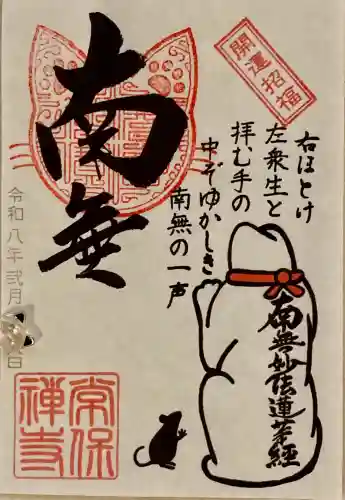 開運招福
右ほとけ
左衆生と
拝む手の
中ぞゆかしき
南無の一声
南無
南無妙法蓮華経
令和八年弐月
日
常保
禅寺